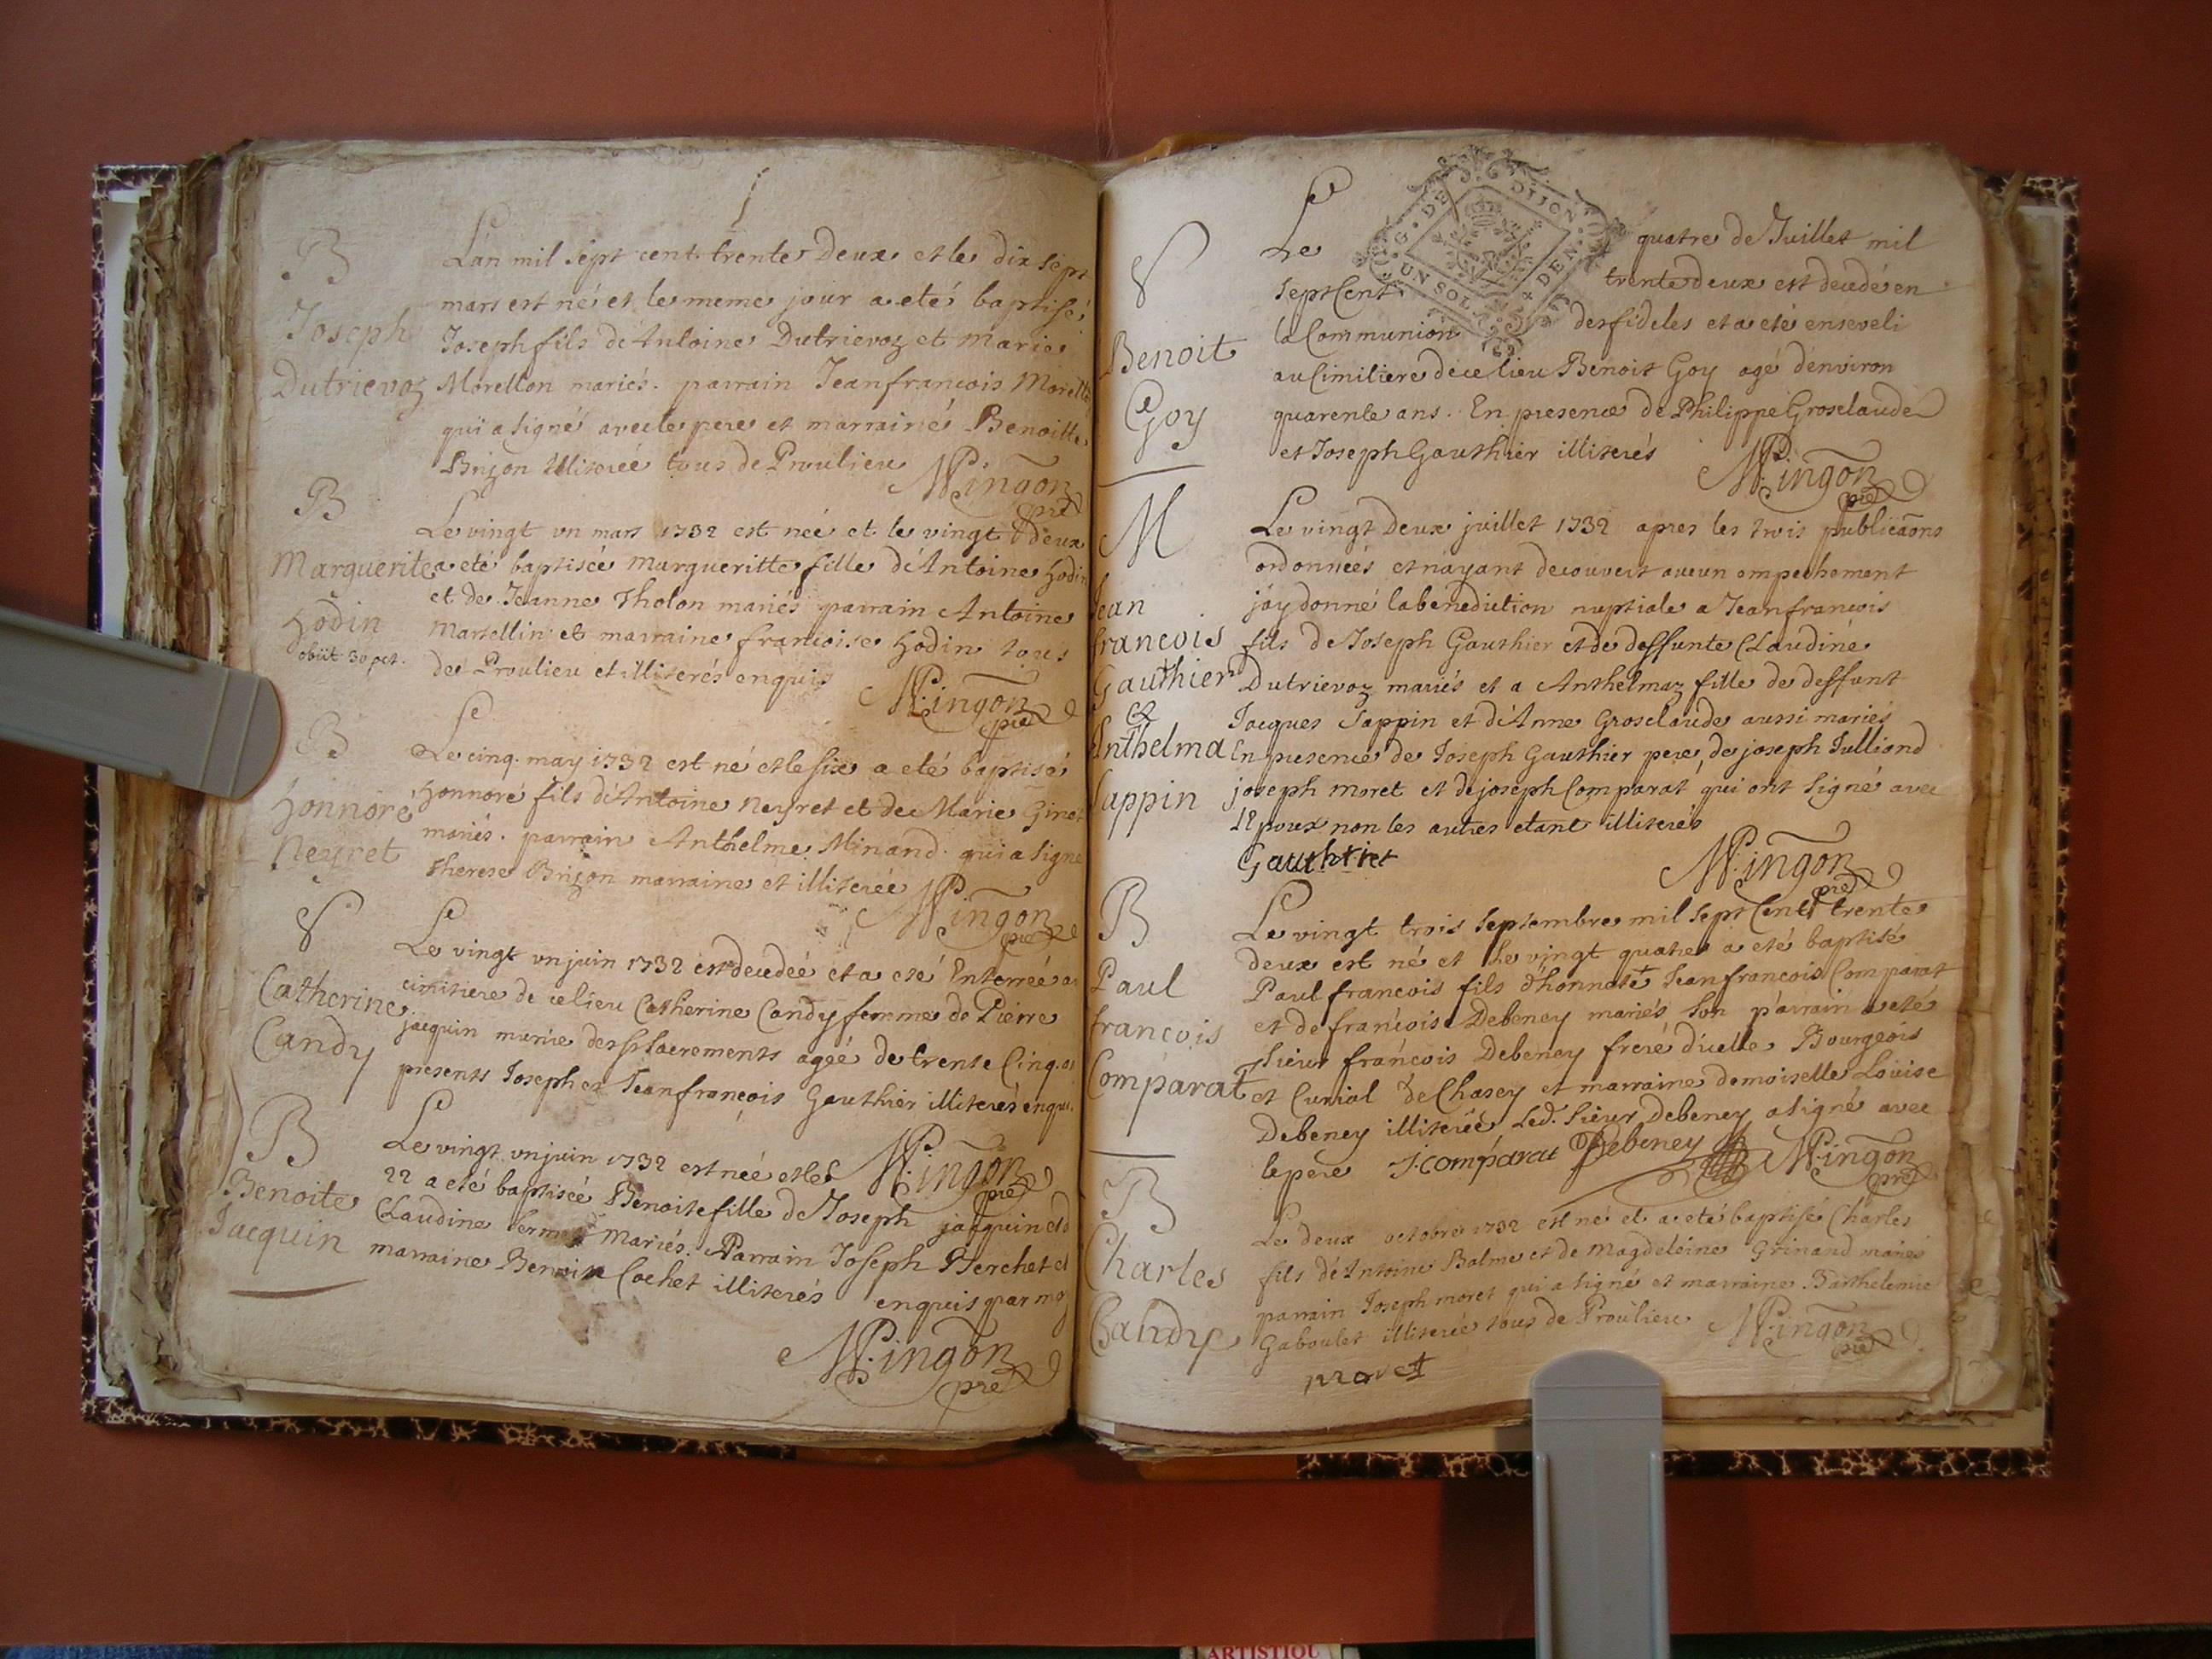 B
Joseph
Dutrievoz
L'an mil sept cent trente Deux et le dix sept
mars est né et le meme jour a eté baptisé
Joseph fils d'Antoine Dutrievoz et Marie
Morellon mariés. parrain Jean francois Morell
qui a signé avec le pere et marraine Benoitte
Brizon illiterée tous de Proulieu
M. Pingon
pre
B
Marguerite
Hodin
obiit 30 oct.
Le vingt un mars 1732 est née et le vingt deux
a eté baptisée margueritte fille d'Antoine Hodin
et de Jeanne Tholon mariés parrain Antoine
Marsellin et marraine francoise Hodin tous
de Proulieu et illiterés enquis
M. Pingon
pre
B
Honnoré
Neyret
Le cinq may 1732 est né et le six a eté baptisé
Honnoré fils d'Antoine Neyret et de Marie Ginet
mariés. parrain Anthelme Minand qui a signé
Therese Brizon marraine et illiterée
M. Pingon
pre
S
Catherine
Candy
Le vingt un juin 1732 est decedeé et a eté Enterreé au
cimitiere de ce lieu Catherine Candy femme de Pierre
jacquin munie des Sacrements ageé de trente Cinq
presents Joseph et Jean françois Gauthier illiterés enquis
M. Pingon
pre
B
Benoite
Jacquin
Le vingt un juin 1732 est née et le
22 a eté baptisée Benoite fille de Joseph jacquin et d
Claudine mariés. Parrain Joseph Berchet et
marraine Benoite Cochet illiterés enquis par moy
M. Pingon
pre
G. DE DIJON
UN SOL 4 DEN
S
Benoit
Goy
Le quatre de Juillet mil
sept Cent trente deux est decedé en
la Communion des fideles et a eté enseveli
au Cimitiere de ce lieu Benoit Goy agé d'environ
quarente ans. En presence de Philippe Groselaude
et Joseph Gauthier illiterés
M. Pingon
pre
M
Jean
francois
Gauthier
et
Anthelma
Sappin
Le vingt Deux juillet 1732 apres les trois publicaons
ordonnées et n'ayant decouvert aucun empechement
j'ay donné la benediction nuptiale a Jean francois
fils de Joseph Gauthier et de deffunte Claudine
Dutrievoz mariés et a Anthelmaz fille de deffunt
Jacques Sappin et d'Anne Groselaude aussi mariés
En presence de Joseph Gauthier pere, de joseph Julliand
joseph moret et de joseph Comparat qui ont signé avec
l'epoux non les autres etant illiterés
Gauthier
M. Pingon
pre
B
Paul
francois
Comparat
Le vingt trois septembre mil sept Cent trente
deux est né et le vingt quatre a eté baptisé
Paul francois fils d'honnete Jean francois Comparat
et de francoise Debeney mariés son parrain a eté
sieur francois Debeney frere d'icelle Bourgeois
et Curial de Chasey et marraine demoiselle Louise
Debeney illiterée Led. sieur Debeney a signé avec
le pere J. Comparat Debeney
M. Pingon
pre
B
Charles
Le deux octobre 1732 est né et a eté baptisé Charles
fils d'Antoine Balme et de Magdeleine Grinand mariés
parrain Joseph moret qui a signé et marraine Barthelemie
Gaboulet illiterée tous de Proulieu
M. Pingon
pre
ARTISTIQU